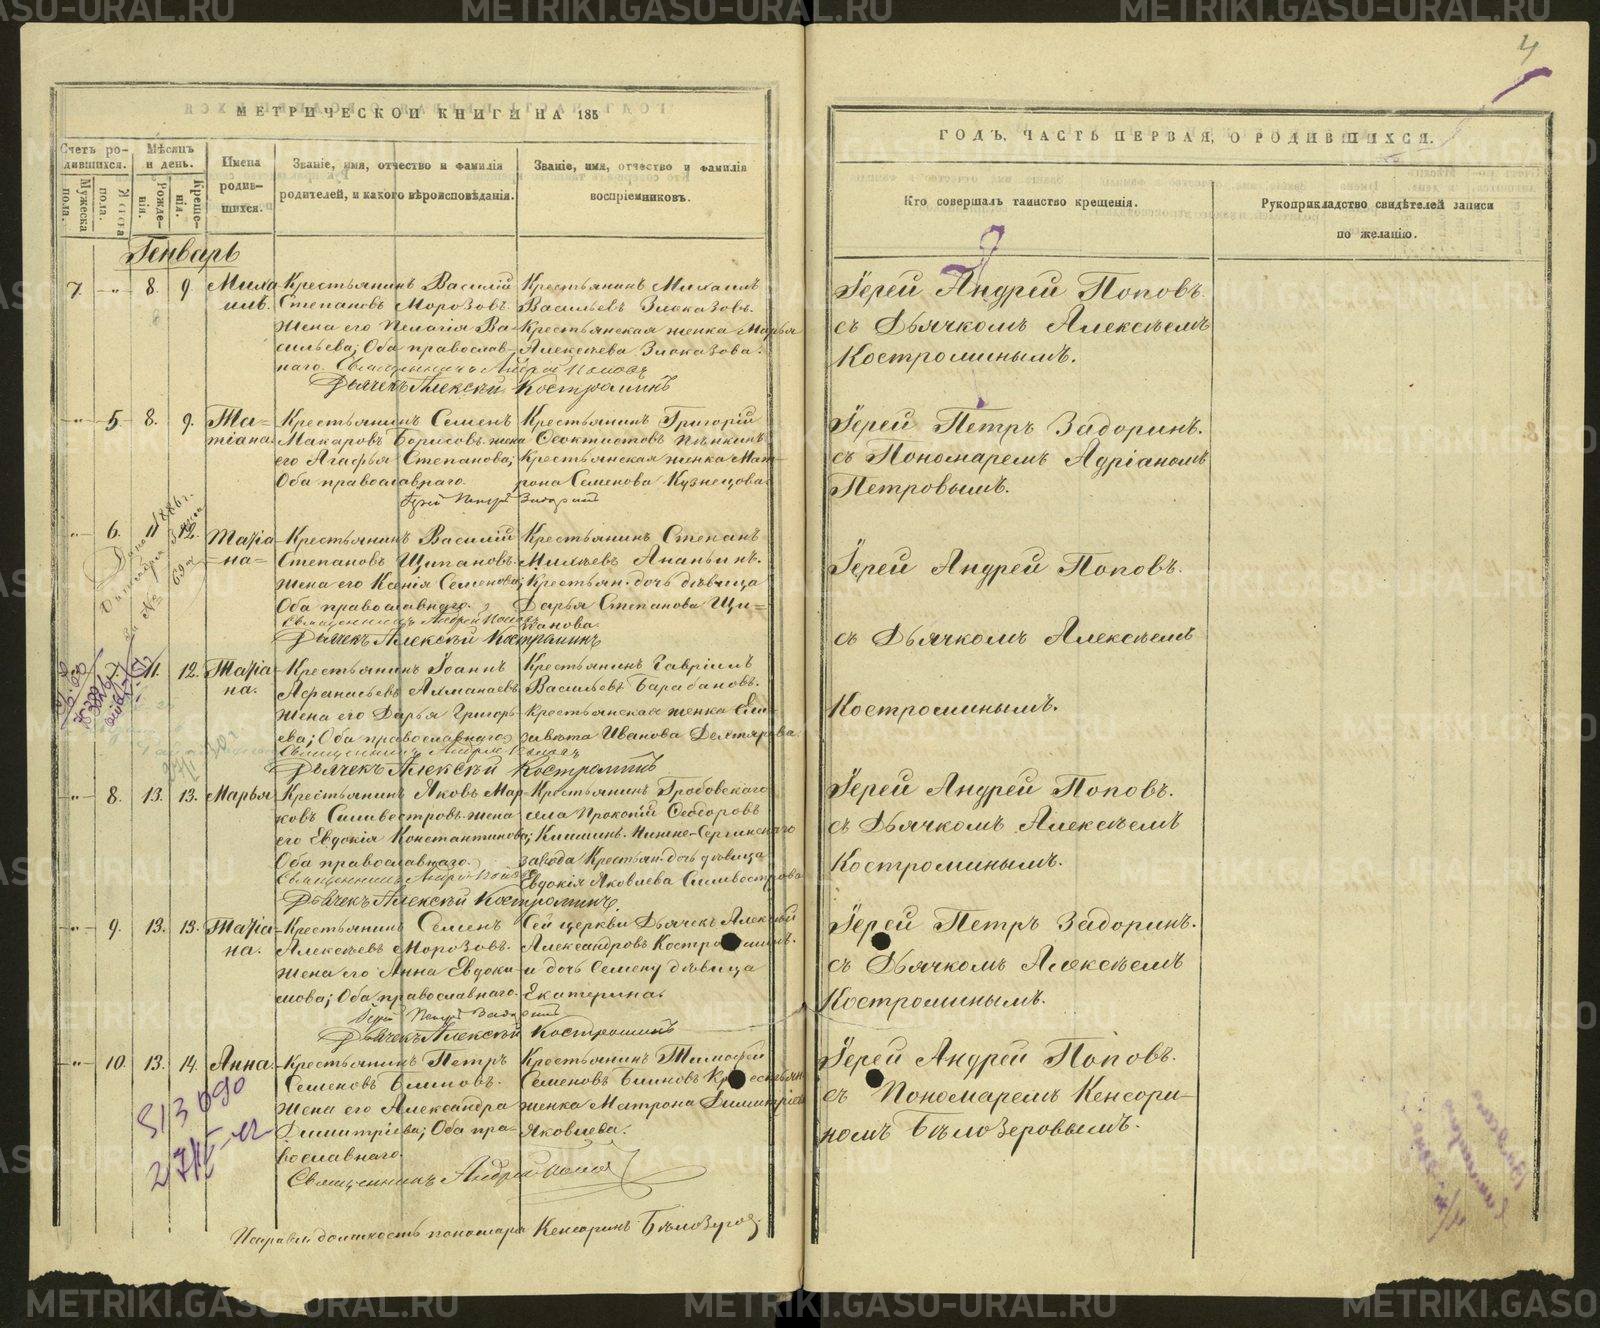 METRIKI.GASO-URAL.RU
4
МЕТРИЧЕСКОЙ КНИГИ НА 185
Счетъ родившихся.
Мужеска пола.
Женска пола.
Мѣсяцъ и день.
Рожденія.
Крещенія.
Имена родившихся.
Званіе, имя, отчество и фамилія
родителей, и какого вѣроисповѣданія.
Званіе, имя, отчество и фамилія
воспріемниковъ.
Генварь
7. 8. 9. Миха
илъ.
Крестьянинъ Василій
Степановъ Морозовъ.
Жена его Пелагія Ва-
сильева; Оба православ-
наго.
Крестьянинъ Михаилъ
Васильевъ Злоказовъ.
Крестьянская женка Марья
Алексѣева Злоказова.
Священникъ Андрей Поповъ
Дьячекъ Алексѣй Костроминъ
5. 8. 9. Та-
тіана.
Крестьянинъ Семенъ
Макаровъ Борисовъ. жена
его Агафья Степанова;
Оба православнаго.
Крестьянинъ Григорій
Ѳеоктистовъ Пѣнкинъ
Крестьянская женка Мат-
рона Семенова Кузнецова
Іерей Петръ Задоринъ
6. 11 12. Татіа
на
Крестьянинъ Василій
Степановъ Щипановъ.
Жена его Ксенія Семенова;
Оба православнаго.
Крестьянинъ Степанъ
Михѣевъ Ананьинъ.
Крестьян. дочь дѣвица
Дарья Степанова Щи=
панова.
Священникъ Андрей Поповъ
Дьячекъ Алексѣй Костроминъ
11. 12. Татіа
на.
Крестьянинъ Іоаннъ
Афанасьевъ Ахманаевъ
Жена его Дарья Григорь-
ева; Оба православнаго
Крестьянинъ Гавріилъ
Васильевъ Барабановъ.
Крестьянская женка Ели-
завѣта Иванова Дектярева
Священникъ Андрей Поповъ
Дьячекъ Алексѣй Костроминъ
8. 13. 13. Марья
Крестьянинъ Яковъ Мар-
ковъ Силивестровъ. жена
его Евдокія Константинова;
Оба православнаго.
Крестьянинъ Гробовскаго
села Прокопій Ѳеодоровъ
Климинъ. Нижне-Сергинскаго
завода Крестьян. дочь дѣвица
Евдокія Яковлева Силивестрова
Священникъ Андрей Поповъ
Дьячекъ Алексѣй Костроминъ.
9. 13. 13. Татіа
на.
Крестьянинъ Семенъ
Алексѣевъ Морозовъ.
Жена его Анна Евдоки-
мова; Оба православнаго.
Сей церкви Дьячекъ Алексѣй
Александровъ Костроминъ.
и дочь Семену дѣвица
Екатерина.
Іерей Петръ Задоринъ
Дьячекъ Алексѣй Костроминъ
10. 13. 14. Анна.
Крестьянинъ Петръ
Семеновъ Блиновъ.
Жена его Александра
Димитріева; Оба пра-
вославнаго.
Крестьянинъ Тимофей
Семеновъ Блиновъ Крестьян
женка Матрона Димитріева
Яковлева.
513690
Священникъ Андрей Поповъ
Исправл. должность пономаря Кенсоринъ Бѣлозеровъ.
ГОДЪ, ЧАСТЬ ПЕРВАЯ, О РОДИВШИХСЯ.
Кто совершалъ таинство крещенія.
Рукоприкладство свидѣтелей записи
по желанію.
Іерей Андрей Поповъ.
съ Дьячкомъ Алексѣемъ
Костроминымъ.
Іерей Петръ Задоринъ.
съ Пономаремъ Адріаномъ
Петровымъ.
Іерей Андрей Поповъ.
съ Дьячкомъ Алексѣемъ
Костроминымъ.
Іерей Андрей Поповъ.
съ Дьячкомъ Алексѣемъ
Костроминымъ.
Іерей Петръ Задоринъ.
съ Дьячкомъ Алексѣемъ
Костроминымъ.
Іерей Андрей Поповъ.
съ Пономаремъ Кенсори-
номъ Бѣлозеровымъ.
METRIKI.GASO-URAL.RU